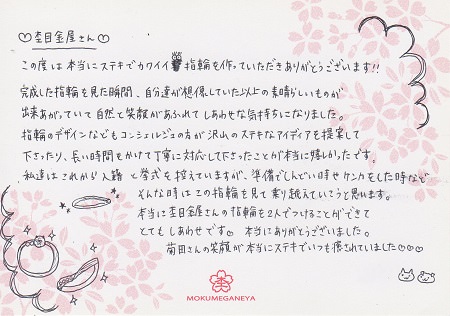 ♡杢目金屋さん♡
この度は本当にステキでカワイイ指輪を作っていただきありがとうございます!!
完成した指輪を見た瞬間、自分達が想像していた以上の素晴らしいものが
出来あがっていて自然と笑顔があふれてしあわせな気持ちになりました。
指輪のデザインなどもコンシェルジュの方が沢山のステキなアイディアを提案して
下さったり、長い時間をかけて丁寧に対応して下さったことが本当に嬉しかったです。
私達はこれから入籍と挙式を控えていますが、準備でしんどい時やケンカをした時など
そんな時はこの指輪を見て乗り越えていこうと思います。
本当に杢目金屋さんの指輪を2人でつけることができて
とてもしあわせです♡ 本当にありがとうございました。
菊田さんの笑顔が本当にステキでいつも癒されていました♡♡♡
MOKUMEGANEYA